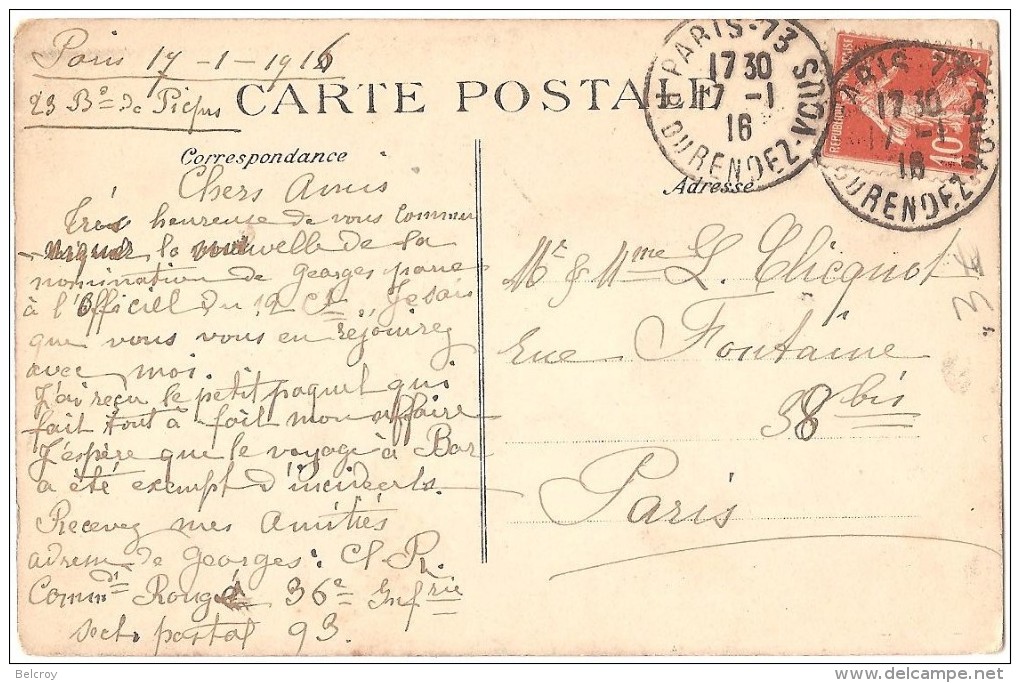 Paris 17 - 1 - 1916
23 Bd de Picpus
CARTE POSTALE
Correspondance
Adresse
Chers Amis
Très heureuse de vous commu
niquer la nouvelle de la
nomination de Georges parue
à l'Officiel du 12 Ct. Je sais
que vous vous en réjouirez
avec moi.
J'ai reçu le petit paquet qui
fait tout à fait mon affaire
J'espère que le voyage à Bar
a été exempt d'incidents.
Recevez mes Amitiés
adresse de Georges :
Commdt Rougé 36e Infrie
sect postal 93.
Mr & Mme L. Clicquot
rue Fontaine
38 bis
Paris
PARIS-73
17 30
17 -1
16
R. DU RENDEZ-VOUS
PARIS-73
17 30
17 -1
16
R. DU RENDEZ-VOUS
10
Belcroy
delcampe.net